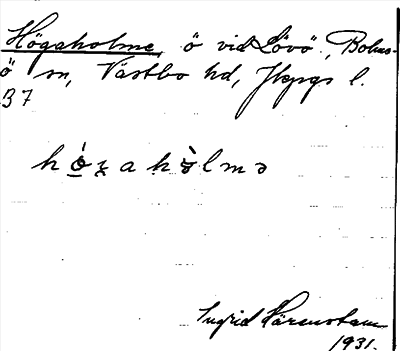 Högaholme, ö vid Lövö, Bolms-
ö sn, Västbo hd, Jkpgs l.
B7
Ingrid Härenstam
1931.